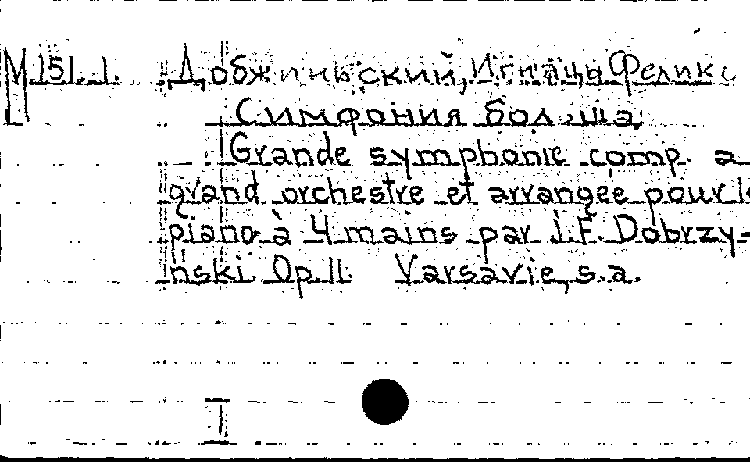 M 151. 1. Добжиньский, Игнаца Феликс
Симфония больша.
Grande symphonie comp. a
grand orchestre et arrangée pour le
piano à 4 mains par J.F. Dobrzy-
ński Op. 11. Varsavie, s.a.